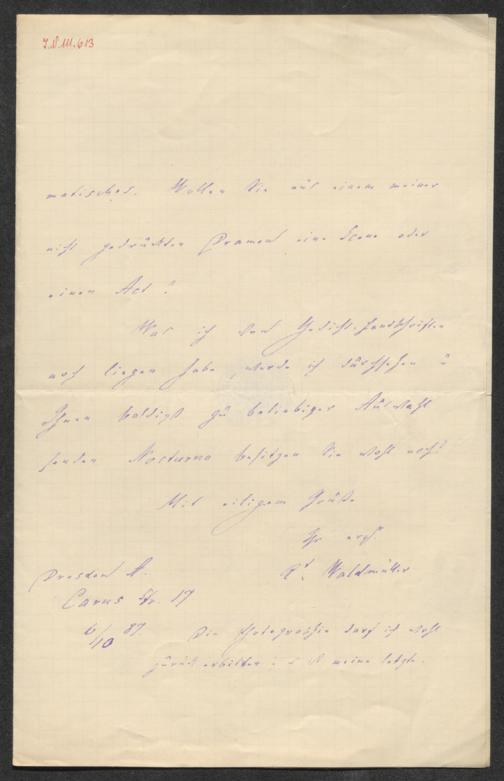 J.N. 111.613
matisches. Wollen Sie aus einem meiner
nicht gedruckten Dramen eine Scene oder
einen Act?
Was ich von Gedicht-Handschriften
noch liegen habe, werde ich durchsehen u
Ihnen baldigst zu beliebiger Auswahl
senden Nocturno besitzen Sie wohl noch?
Mit eiligem Gruße
Ihr
Waldmüller
Dresden A.
Carus Str. 17
6/10 87.
Die Photographie darf ich wohl
zurück erbitten: meine letzte.